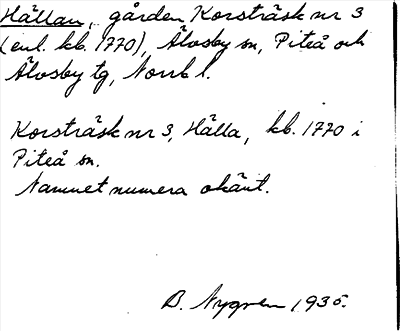 Hällan, gården Korsträsk nr 3
(enl. kb. 1770), Älvsby sn, Piteå och
Älvsby tg, Norrb l.
Korsträsk nr 3, Hälla, kb. 1770 i
Piteå sn.
Namnet numera okänt.
B. Nygren 1935.